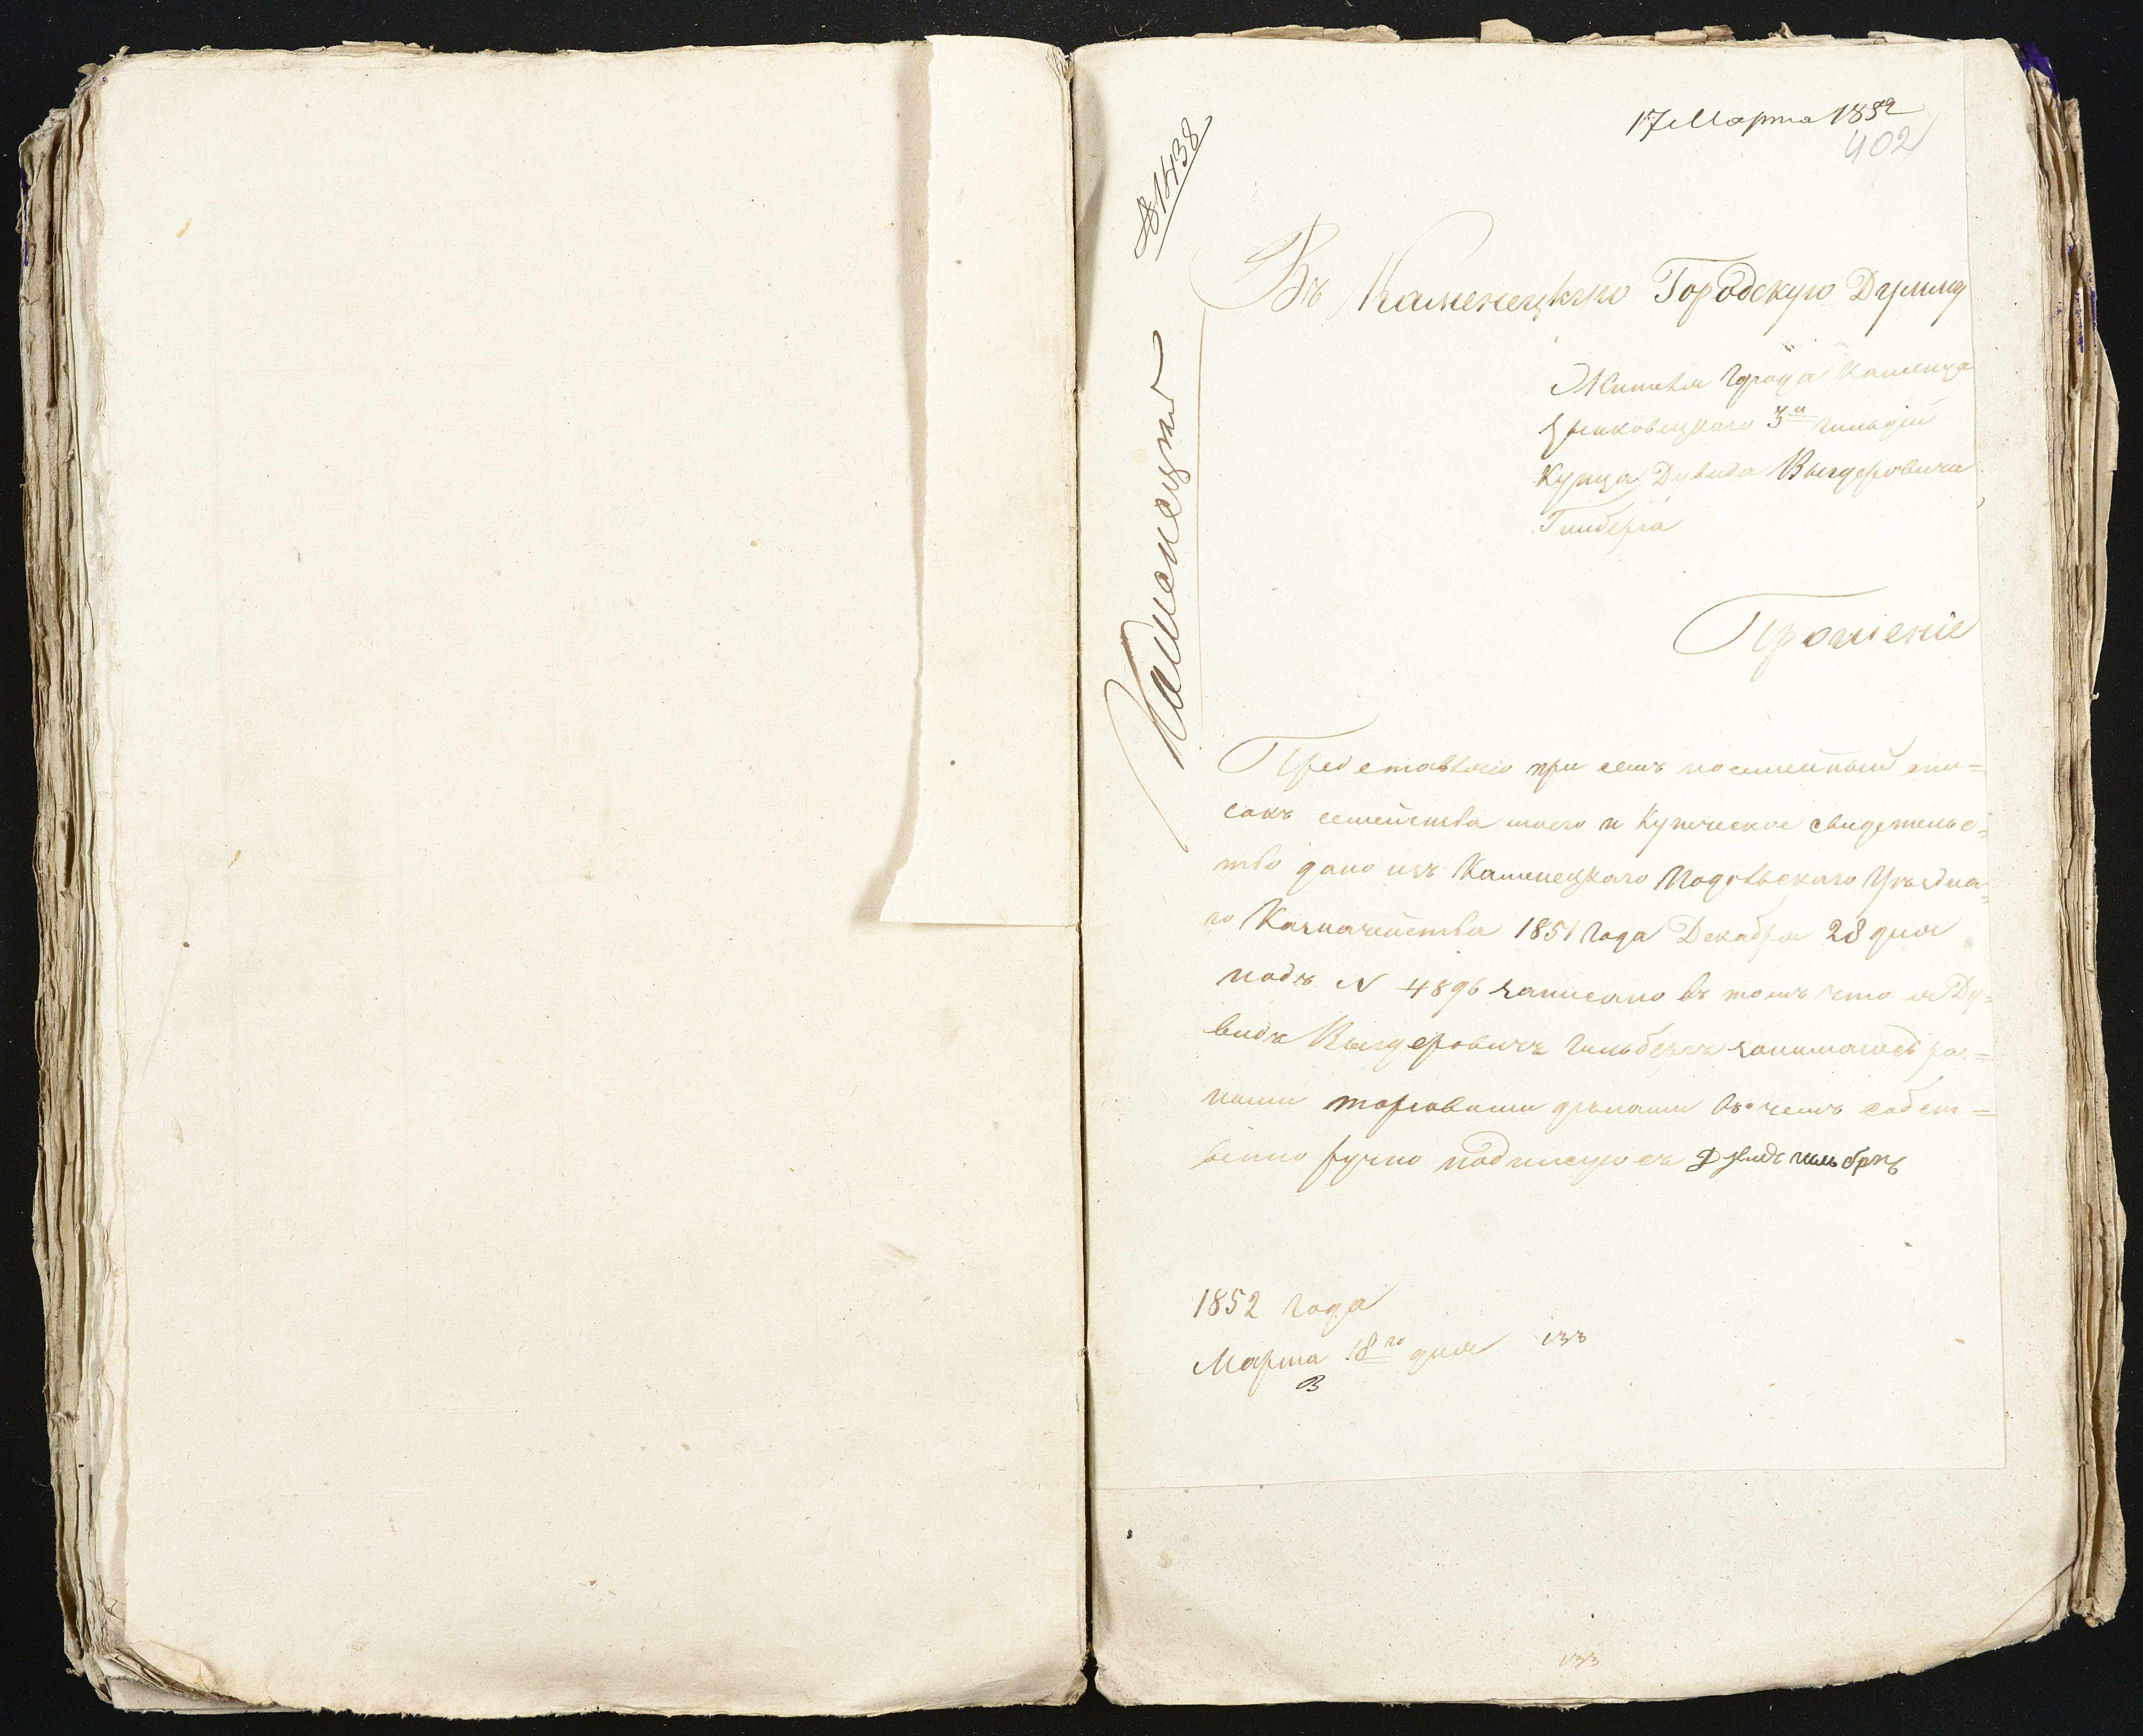 17 Марта 1852
402
№ 1438
Каменецъ
Въ Каменецкую Городскую Думму
Жителя города Каменца
3й гильдіи
Купца Дувида Выгдеровича
Гинберга
Прошеніе
Представляю при семъ посемейный спи=
сокъ семейства моего и Купеческое свидетельс=
тво дано изъ Каменецкаго Подольскаго Уѣздна=
го Казначейства 1851 года Декабря 28 дня
подъ N 4896 записано въ томъ что я Ду=
видъ Выгдеровичъ Гильбергъ занимаюсь раз=
ными торговыми дѣлами въ чемъ собст=
венно ручно подписуюсъ Дувидъ гильбргъ
1852 года
Марта 18го дня
133
В
133